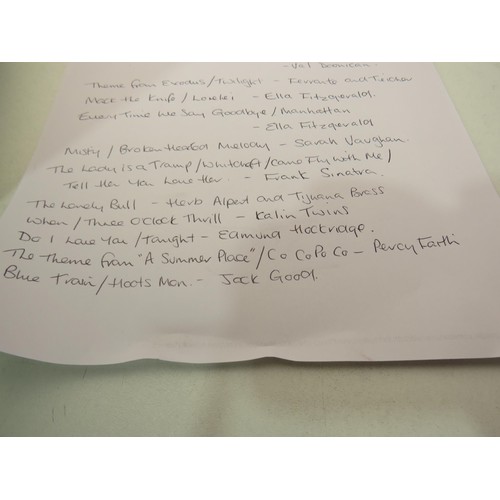 - Val Doonican.
Theme from Exodus/Twilight - Ferrante and Teicher
Mack the Knife/Lorelei - Ella Fitzgerald.
Every Time We Say Goodbye/Manhattan
- Ella Fitzgerald
Misty/Broken Hearted Melody - Sarah Vaughan
The Lady is a Tramp/Witchcraft/Come Fly with Me/
Tell Her You Love Her. - Frank Sinatra.
The Lonely Bull - Herb Alpert and Tijuana Brass
When/Three O'Clock Thrill - Kalin Twins
Do I Love You/Tonight - Edmund Hockridge.
The Theme from "A Summer Place"/Co Co Po Co - Percy Faith
Blue Train/Hoots Mon. - Jack Good.